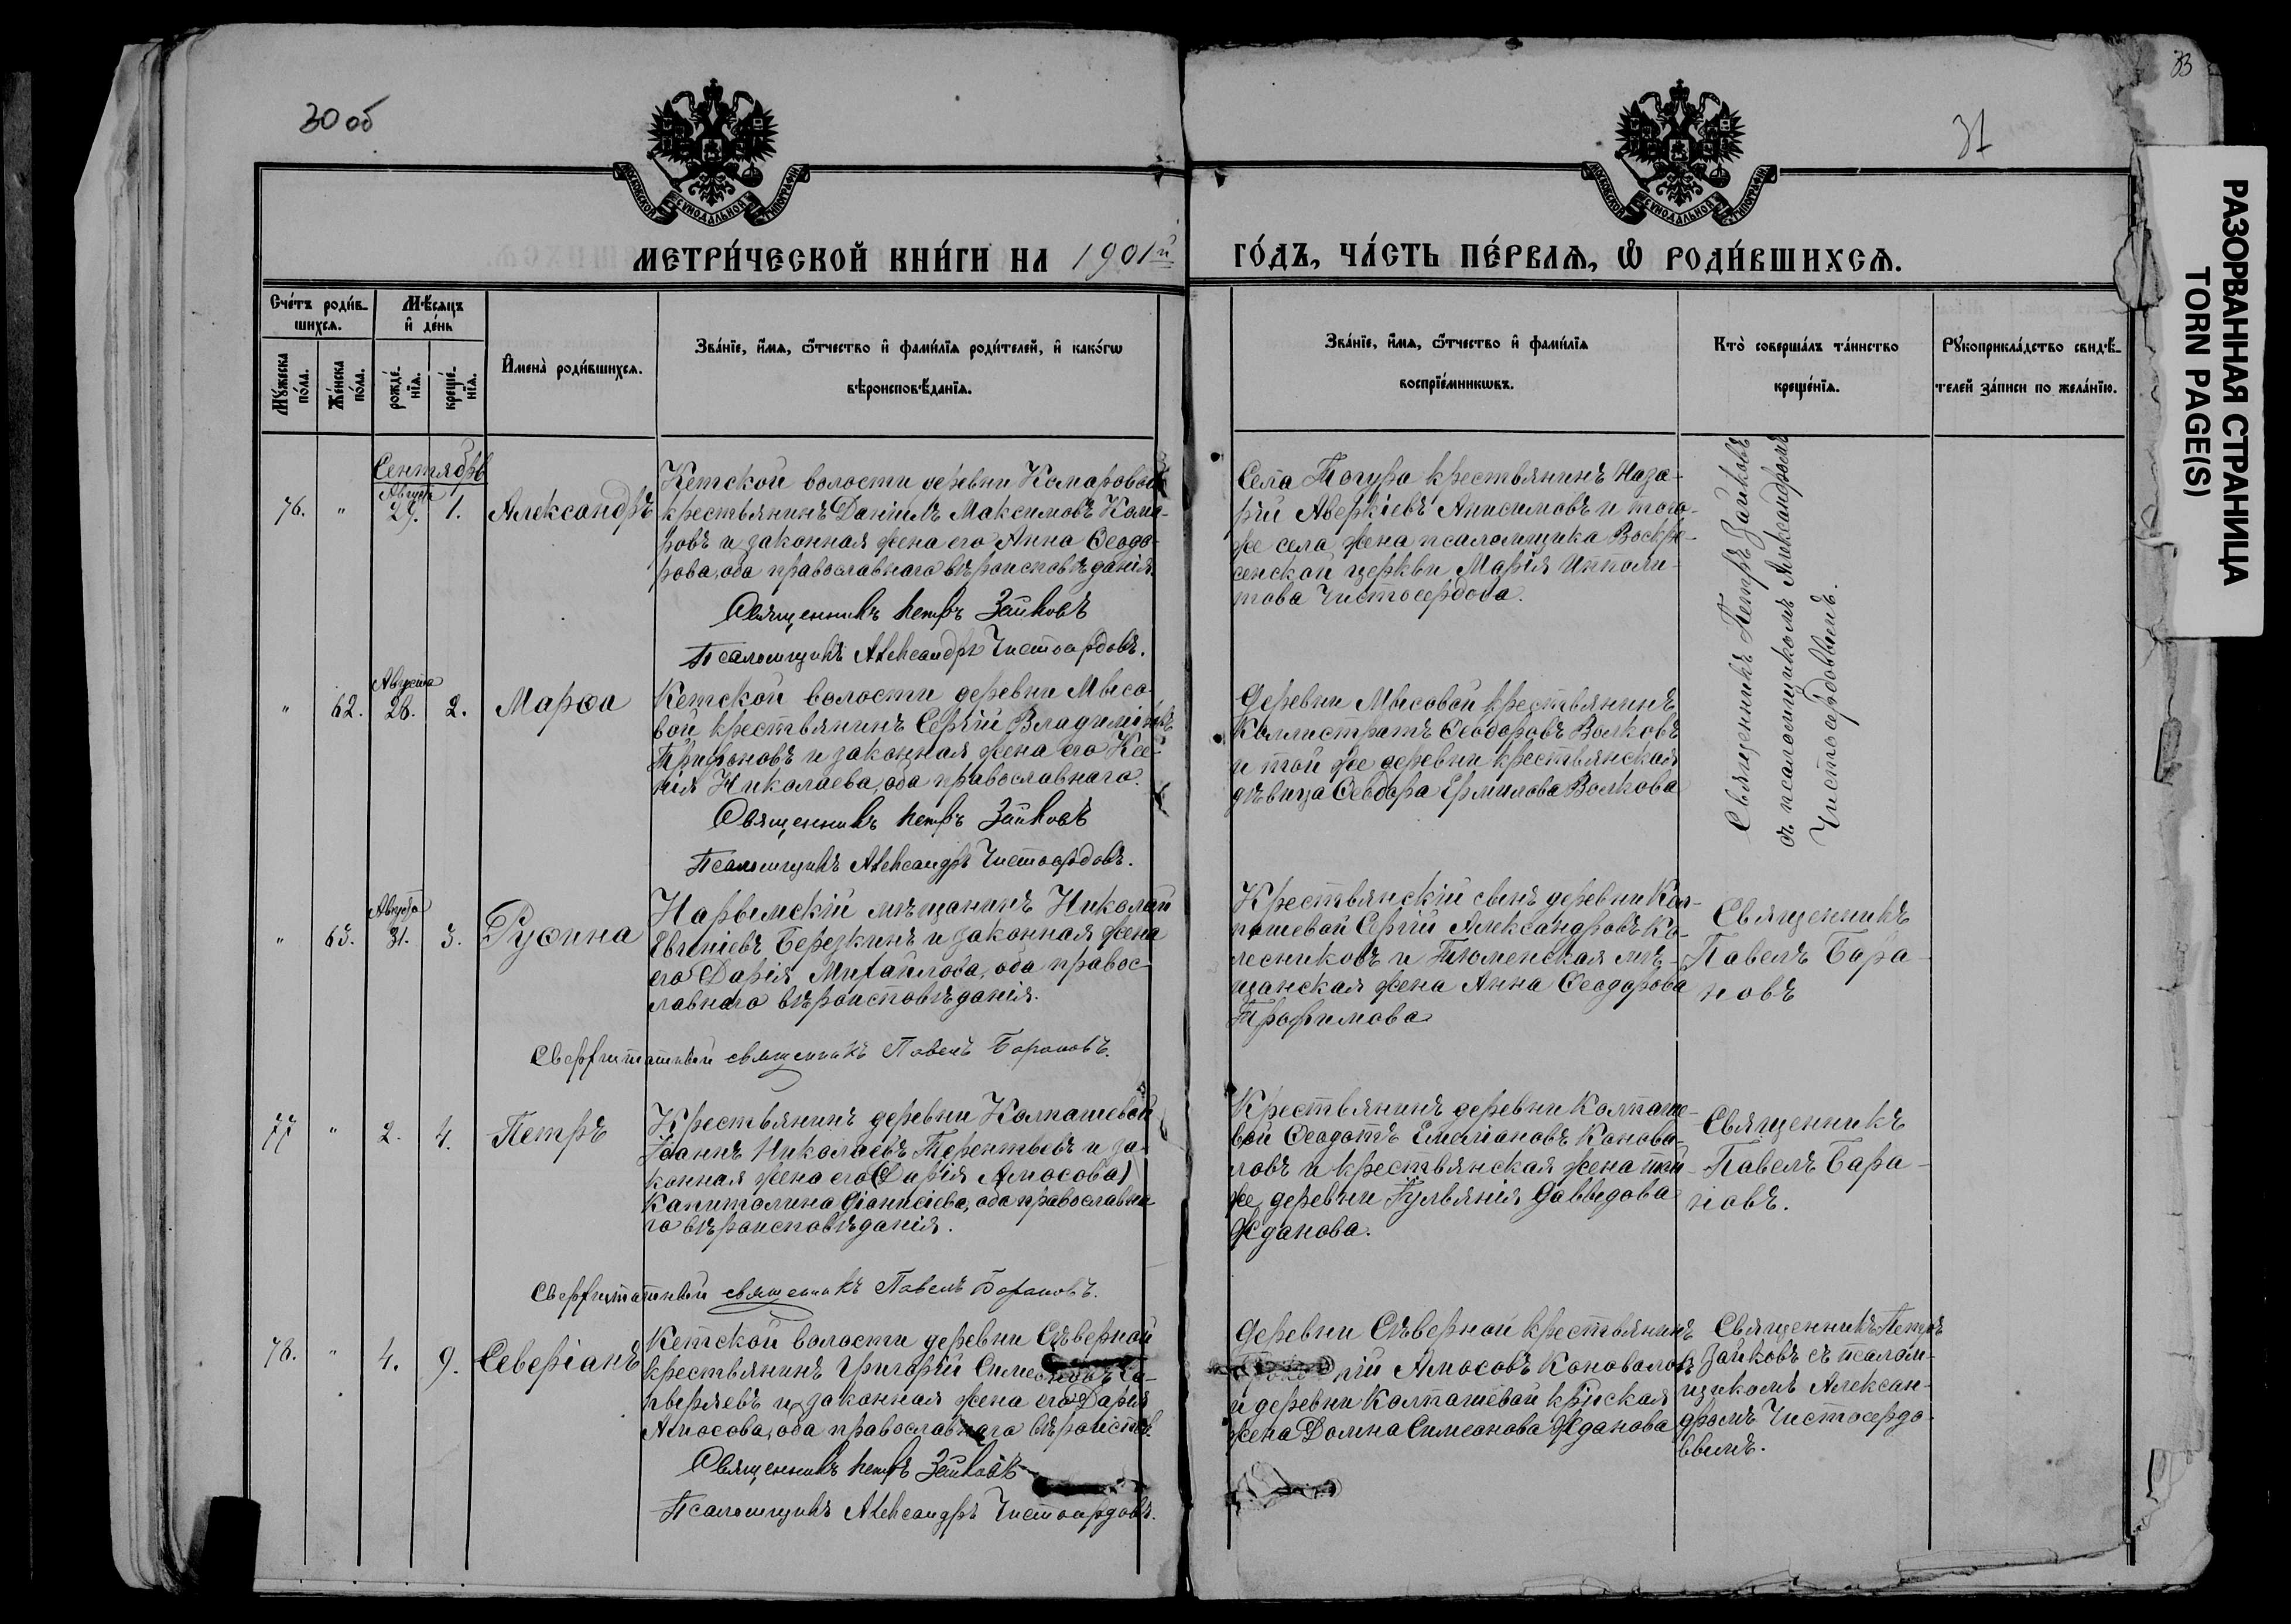 30 об
33
31
РАЗОРВАННАЯ СТРАНИЦА
TORN PAGE(S)
МОСКОВСКОЙ СѴНОДАЛЬНОЙ ТИПОГРАФІИ
МОСКОВСКОЙ СѴНОДАЛЬНОЙ ТИПОГРАФІИ
МЕТРИ́ЧЕСКОЙ КНИ́ГИ НА 1901й ГО́ДЪ, ЧА́СТЬ ПЕ́РВАѦ, Ѡ҆ РОДИ́ВШИХСѦ.
Сче́тъ роди́в-
шихся.
Мѣ́сяцъ
и҆ де́нь
Мꙋ́жеска
по́ла.
Же́нска
по́ла.
рожде́-
нїѧ.
креще́-
нїѧ.
И҆мена̀ роди́вшихсѧ.
Зва́нїе, и҆́мѧ, ѻ҆́тчество и҆ фами́лїѧ роди́телей, и҆ како́гѡ
вѣроисповѣ́данїѧ.
Зва́нїе, и҆́мѧ, ѻ҆́тчество и҆ фами́лїѧ
воспрїе́мникѡвъ.
Кто̀ соверша́лъ та́инство
креще́нїѧ.
Рꙋкоприкла́дство свидѣ́-
телей за́писи по жела́нїю.
Сентябрь
Августа
76. " 29. 1. Александръ
Кетской волости деревни Комаровой
крестьянинъ Даніилъ Максимовъ Кома-
ровъ и законная жена его Анна Ѳеодо-
рова, оба православнаго вѣроисповѣданія.
Священникъ Петръ Зайковъ
Псаломщикъ Александръ Чистосердовъ.
Села Тогура крестьянинъ Наза-
рій Аверкіевъ Анисимовъ и того-
же села жена псаломщика Воскре-
сенской церкви Марія Ипполи-
това Чистосердова.
Священникъ Петръ Зайковъ
съ псаломщикомъ Александромъ
Чистосердовымъ.
Августа
" 62. 28. 2. Марѳа
Кетской волости деревни Мысо-
вой крестьянинъ Сергій Владиміровъ
Трифоновъ и законная жена его Ксе-
нія Николаева, оба православнаго.
Священникъ Петръ Зайковъ
Псаломщикъ Александръ Чистосердовъ.
Деревни Мысовой крестьянинъ
Каллистратъ Ѳеодоровъ Волковъ
и той же деревни крестьянская
дѣвица Ѳеодора Ермилова Волкова
Августа
" 63. 31. 3. Руѳина
Нарымскій мѣщанинъ Николай
Евгеніевъ Березкинъ и законная жена
его Дарія Михайлова, оба правос-
лавнаго вѣроисповѣданія.
Сверхштатный священникъ Павелъ Барановъ.
Крестьянскій сынъ деревни Кол-
пашевой Сергій Александровъ Ко-
лесниковъ и Тюменская мѣ-
щанская жена Анна Ѳеодорова
Трофимова
Священникъ
Павелъ Бара-
новъ
77 " 2. 4. Петръ
Крестьянинъ деревни Колпашевой
Іоаннъ Николаевъ Терентьевъ и за-
конная жена его (Дарія Амосова)
Капитолина Діонисіева, оба православна-
го вѣроисповѣданія.
Сверхштатный священникъ Павелъ Барановъ.
Крестьянинъ деревни Колпаше-
вой Ѳеодотъ Емеліановъ Конова-
ловъ и крестьянская жена той
же деревни Гульянія Даввыдова
Жданова.
Священникъ
Павелъ Бара-
новъ.
78. " 4. 9. Северіанъ
Кетской волости деревни Сѣверной
крестьянинъ Григорій Симеоновъ
и законная жена его Дарія
Амосова, оба православнаго вѣроиспов.
Священникъ Петръ Зайковъ
Псаломщикъ Александръ Чистосердовъ.
Деревни Сѣверной крестьянинъ
Амосовъ Коноваловъ
и деревни Колпашевой кр҃нская
жена Домна Симеонова Жданова
Священникъ Петръ
Зайковъ съ псалом-
щикомъ Алексан-
дромъ Чистосердо-
вымъ.